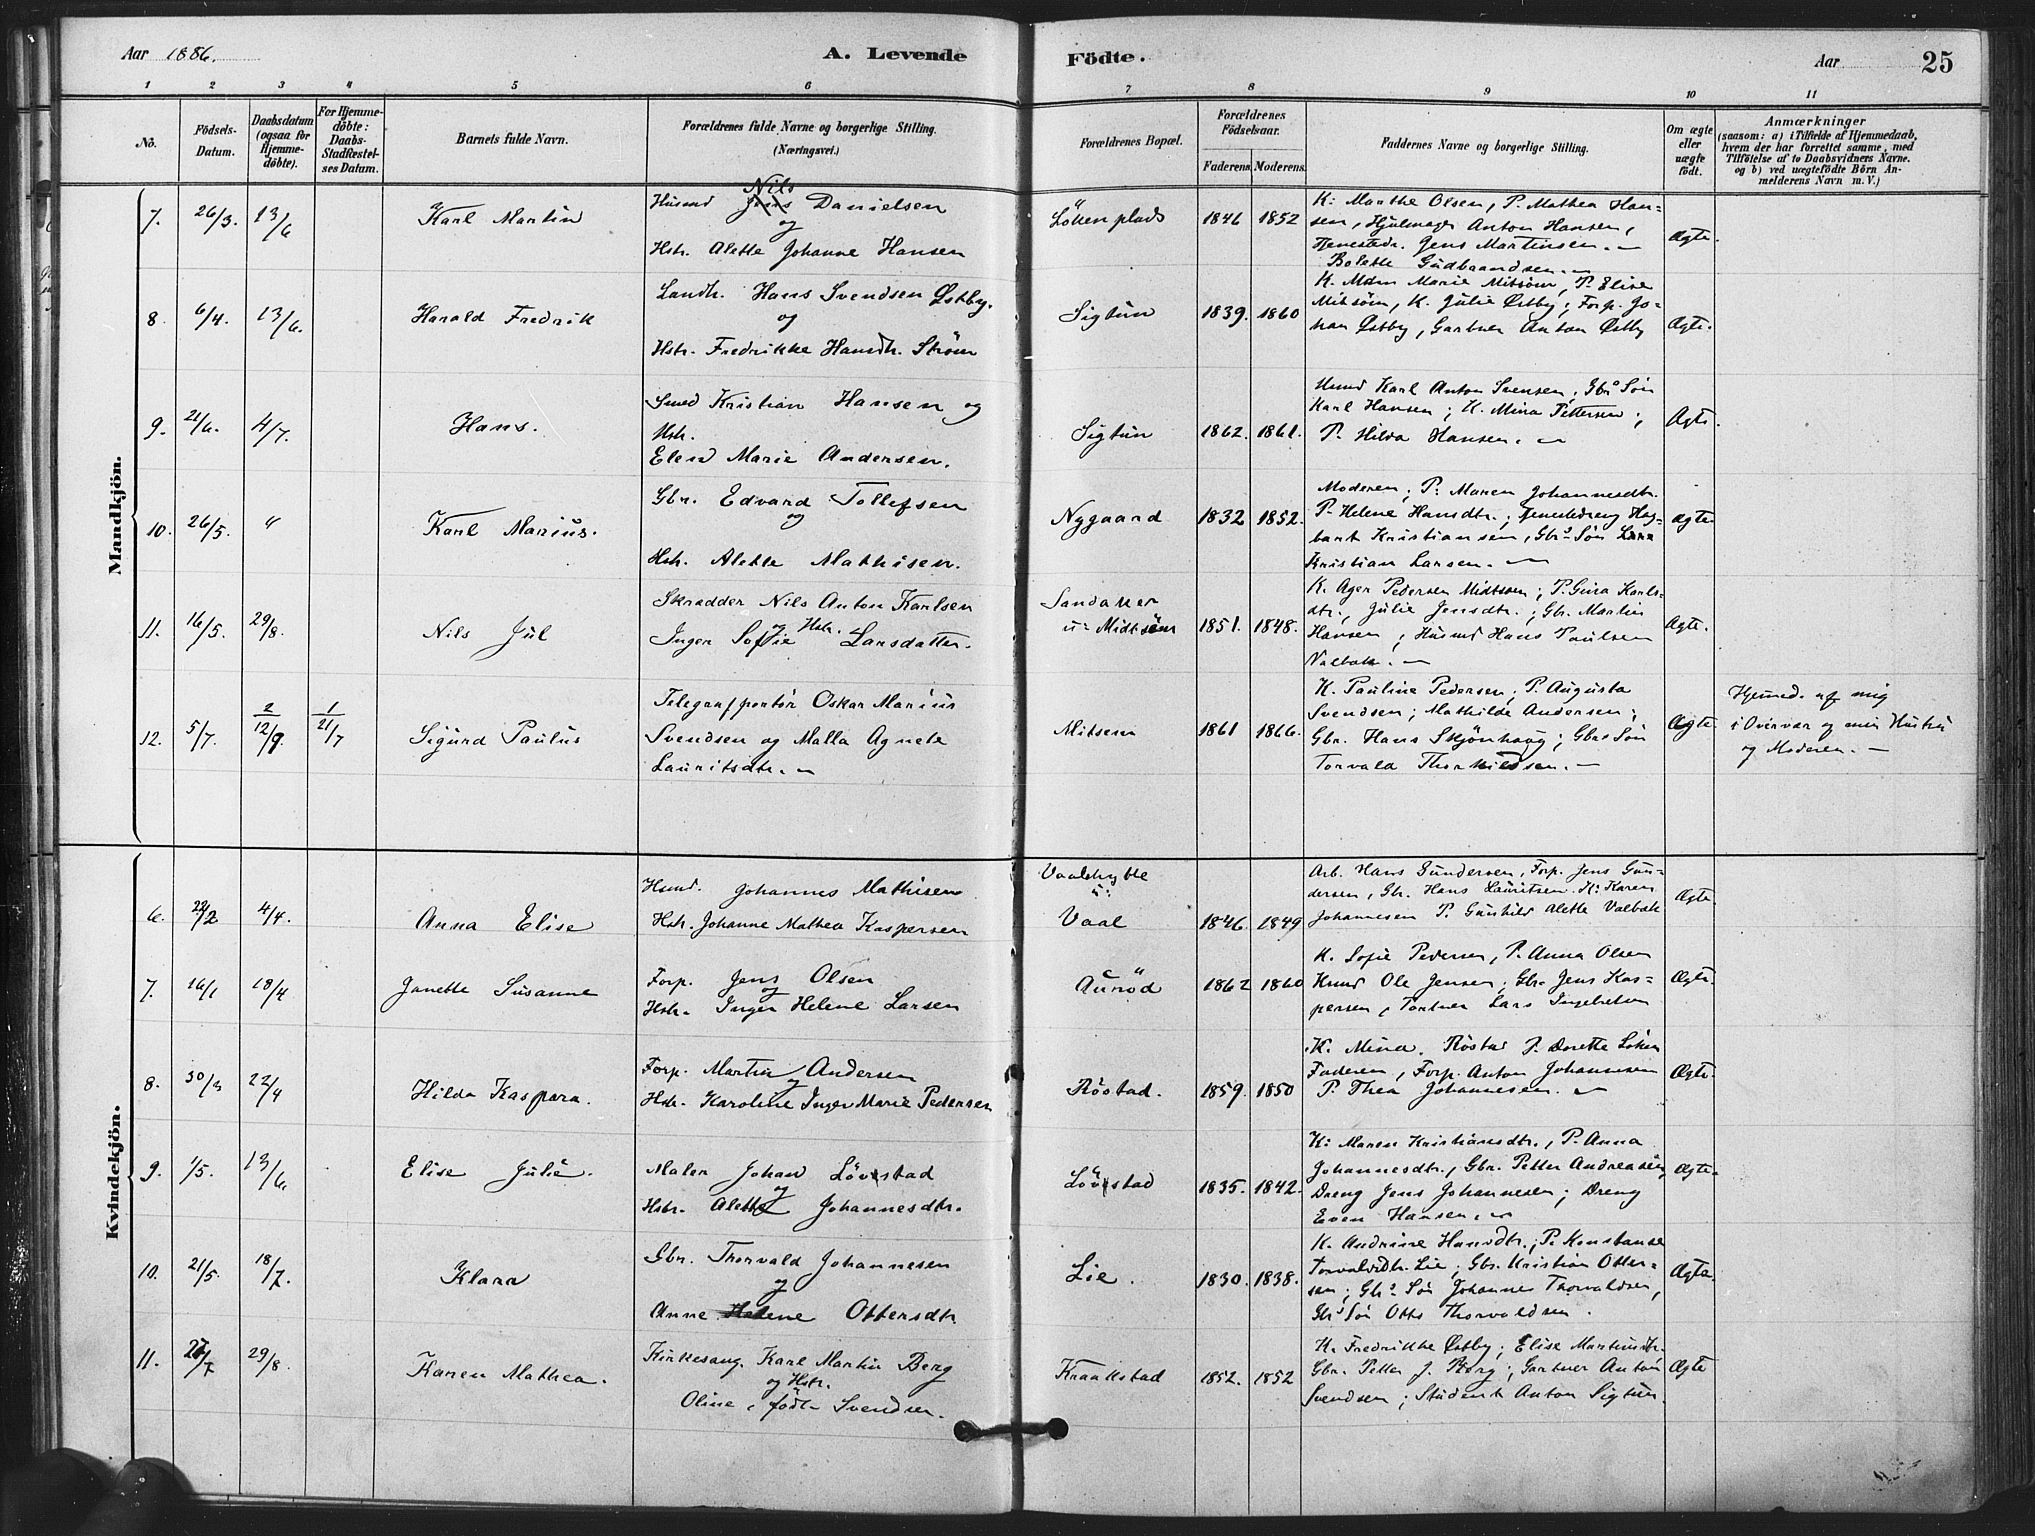 Aar 1886.
A. Levende Födte.
Aar 25
1 2 3 4 5 6 7 8 9 10 11
No.
Födsels-Datum.
Daabsdatum (ogsaa for Hjemme-döbte).
For Hjemme-döbte: Daabs-Stadfæstel-ses Datum.
Barnets fulde Navn.
Forældrenes fulde Navne og borgerlige Stilling. (Næringsvei.)
Forældrenes Bopæl.
Forældrenes Födselsaar.
Faderens. Moderens.
Faddernes Navne og borgerlige Stilling.
Om ægte eller uægte födt.
Anmærkninger
(saasom: a) i Tilfælde af Hjemmedaab,
hvem der har forrettet samme, med
Tilföielse af to Daabsvidners Navne.
og b) ved uægtefödte Börn An-
melderens Navn m. V.)
Mandkjön.
7. 26/3. 13/6 Karl Martin
Husmd Jens Nils Danielsen
og
Hstr. Alette Johanne Hansen
Löken plads 1846 1852
K: Marthe Olsen, P. Mathea Han-
sen, Hjulmager Anton Hansen,
Tjenestedr. Jens Martinsen.
Bolette Gudbrandsen.
Ægte.
8. 6/4. 13/6. Harald Fredrik
Landh. Hans Svendsen Østby.
og
Hstr. Fredrikke Hansdtr. Ström
Sigtun 1839. 1860
K. Mdm Marie Mitsöm, P. Elise
Mitsöm, K. Julie Østby, Forp. Jo-
han Østby, Gartner Anton Østby
Ægte.
9. 21/6. 4/7. Hans.
Smed Kristian Hansen og
Hstr.
Elen Marie Andersen.
Sigtun 1862. 1861.
Husmd Karl Anton Svensen, Gbrs Sön
Karl Hansen; K. Mina Pettersen;
P. Hilda Hansen.
Ægte.
10. 26/5. " Karl Marius.
Gbr. Edvard Tollefsen
og
Hstr. Alette Mathisen.
Nygaard 1832 1852.
Moderen; P: Maren Johannesdtr.
P. Helene Hansdtr.; Tjenestedreng Hag-
bart Kristiansen, Gbrs Sön Lars
Kristian Larsen.
Ægte.
11. 16/5. 29/8. Nils Jul
Skrædder Nils Anton Karlsen
og Hstr.
Inger Sofie Larsdatter.
Sandaker
u: Midtsöm 1851. 1848.
K. Ager Pedersen Midtsöm; P. Gina Karls-
dtr, Julie Jensdtr.; Gbr. Martin
Hansen; Husmd Hans Paulsen
Valbæk.
Ægte.
12. 5/7. 2/12/9. 1/21/7 Sigurd Paulus
Telegrafportör Oskar Marius
Svendsen og Malla Agnete
Lauritsdtr.
Mitsem 1861 1866.
K. Pauline Pedersen; P. Augusta
Svendsen; Mathilde Andersen;
Gbr. Hans Skjönhaug; Gbrs Sön
Torvald Thorkildsen.
Ægte.
Hjemmed. af mig
i Overvær og min Hustru
og Moderen.
Kvindekjön.
6. 22/2 4/4. Anna Elise
Husmd. Johannes Mathisen
Hstr. Johanne Mathea Kaspersen
Vaalshytte
u:
Vaal 1846. 1849
Arb. Hans Gundersen, Forp. Jens Gun-
dersen, Gbr. Hans Lauritsen. K: Karen
Johannesen P. Gunhild Alette Valbæk
Ægte.
7. 16/1 18/4 Janette Susanne
Forp. Jens Olsen
og
Hstr. Inger Helene Larsen
Auröd 1862 1860
K. Sofie Pedersen, P. Anna Olsen
Husmd Ole Jensen; Gbr. Jens Kas-
persen, Lars Ingebretsen
Ægte.
8. 30/3 22/4 Hilda Kaspara.
Forp. Martin Andersen
og
Hstr. Karoline Inger Marie Pedersen
Röstad. 1859. 1850
K. Mina Röstad P. Dorette Löken
Faderen, Forp. Anton Johannesen
P. Thea Johannesen.
Ægte.
9. 1/5. 13/6. Elise Julie.
Maler Johan Lövestad
og
Hstr. Alette Johannesdtr.
Lövestad 1835. 1842.
K: Maren Kristiansdtr., P. Anna
Johannesdtr., Gbr. Petter Andreasen,
Dreng Jens Johannesen; Dreng
Even Hansen.
Ægte.
10. 21/5. 18/7. Klara
Gbr. Thorvald Johannesen
og
Anne Helene Ottersdtr.
Lie. 1830. 1838.
K. Andrine Hansdtr.; P. Konstanse
Torvaldsdtr. Lie; Gbr. Kristian Otter-
sen; Gbrs Sön Johannes Thorvaldsen,
Gbrs Sön Otto Thorvaldsen.
Ægte.
11. 27/7 29/8. Karen Mathea.
Kirkesang. Karl Martin Berg
og Hstr.
Oline, födt Svendsen.
Kraakstad 1852. 1852
K. Fredrikke Østby; Elise Martinsdtr.
Gbr. Petter J. Berg; Gartner Anton
Svendsen; Student Anton Sigtun.
Ægte